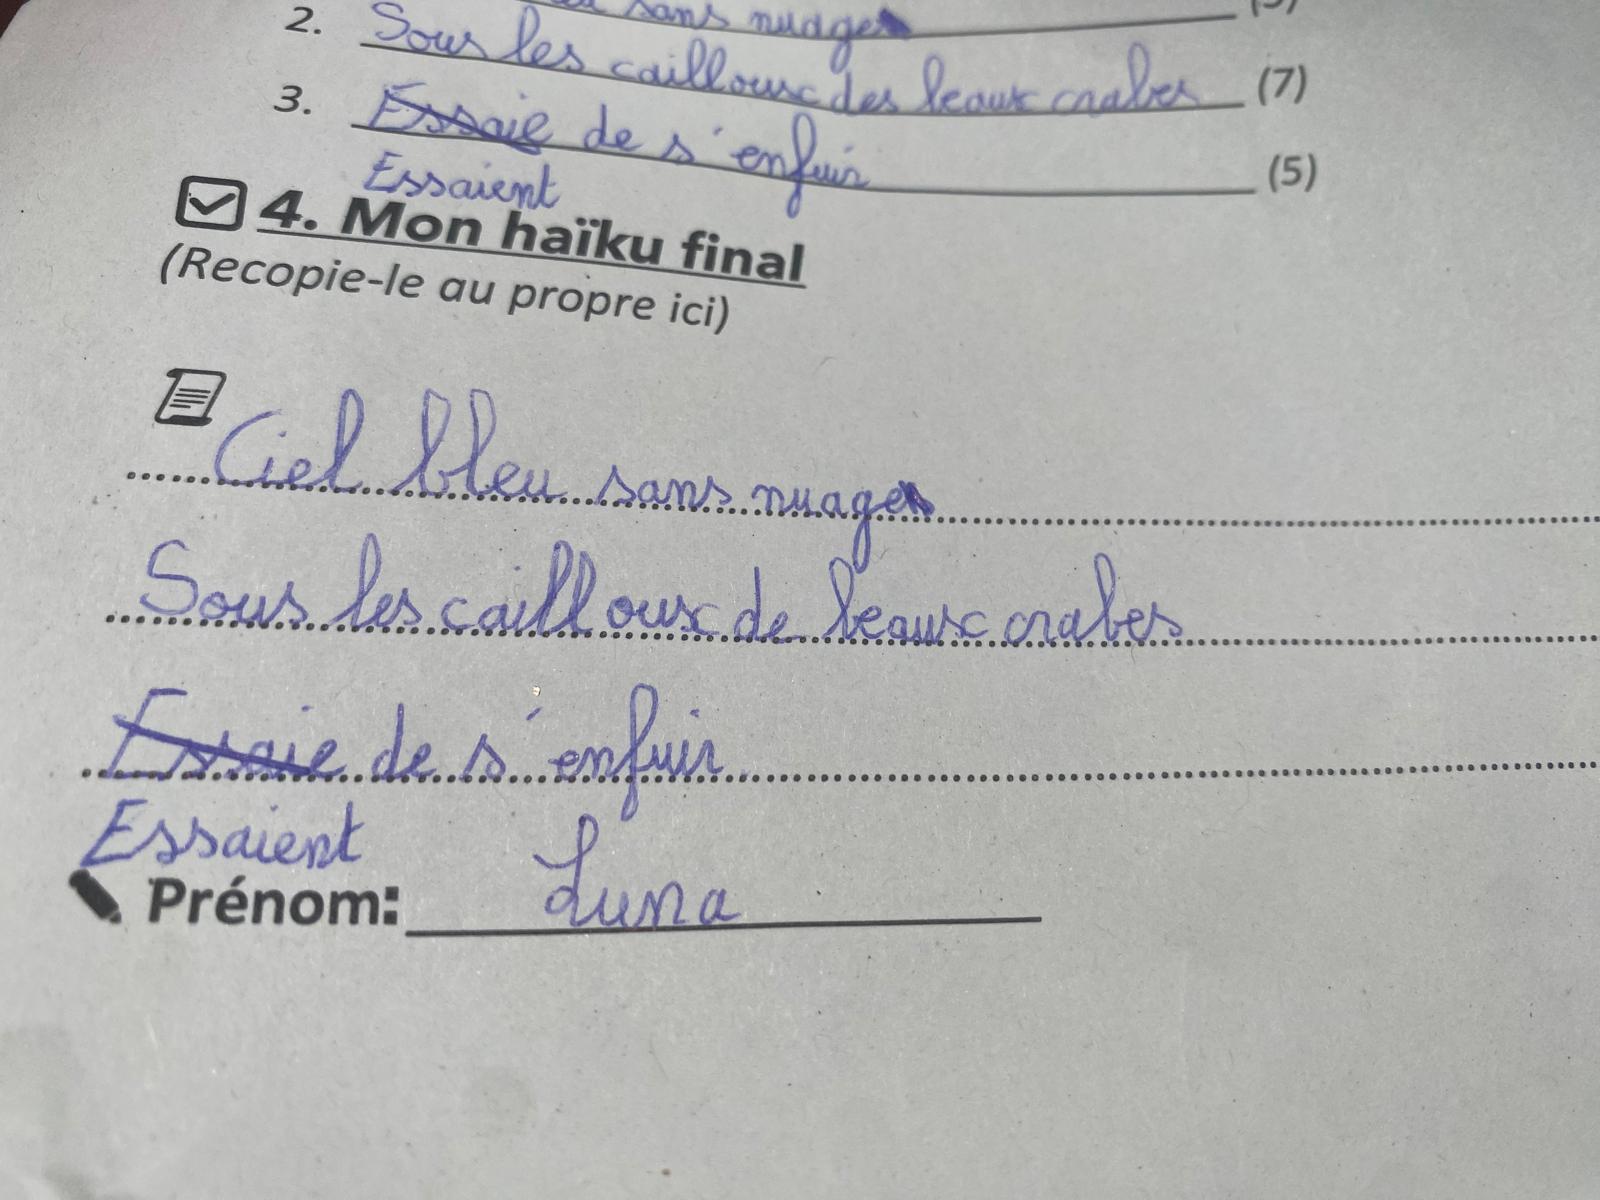 sans nuages
2. Sous les cailloux des beaux crabes (7)
3. Essaie de s'enfuir (5)
Essaient
4. Mon haïku final
(Recopie-le au propre ici)
Ciel bleu sans nuages
Sous les cailloux de beaux crabes
Essaie de s'enfuir
Essaient
Prénom: Luna